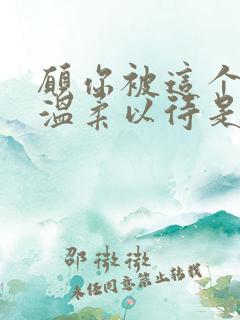 願你被這个
温柔以待是
邵微微
未经同意禁止转载